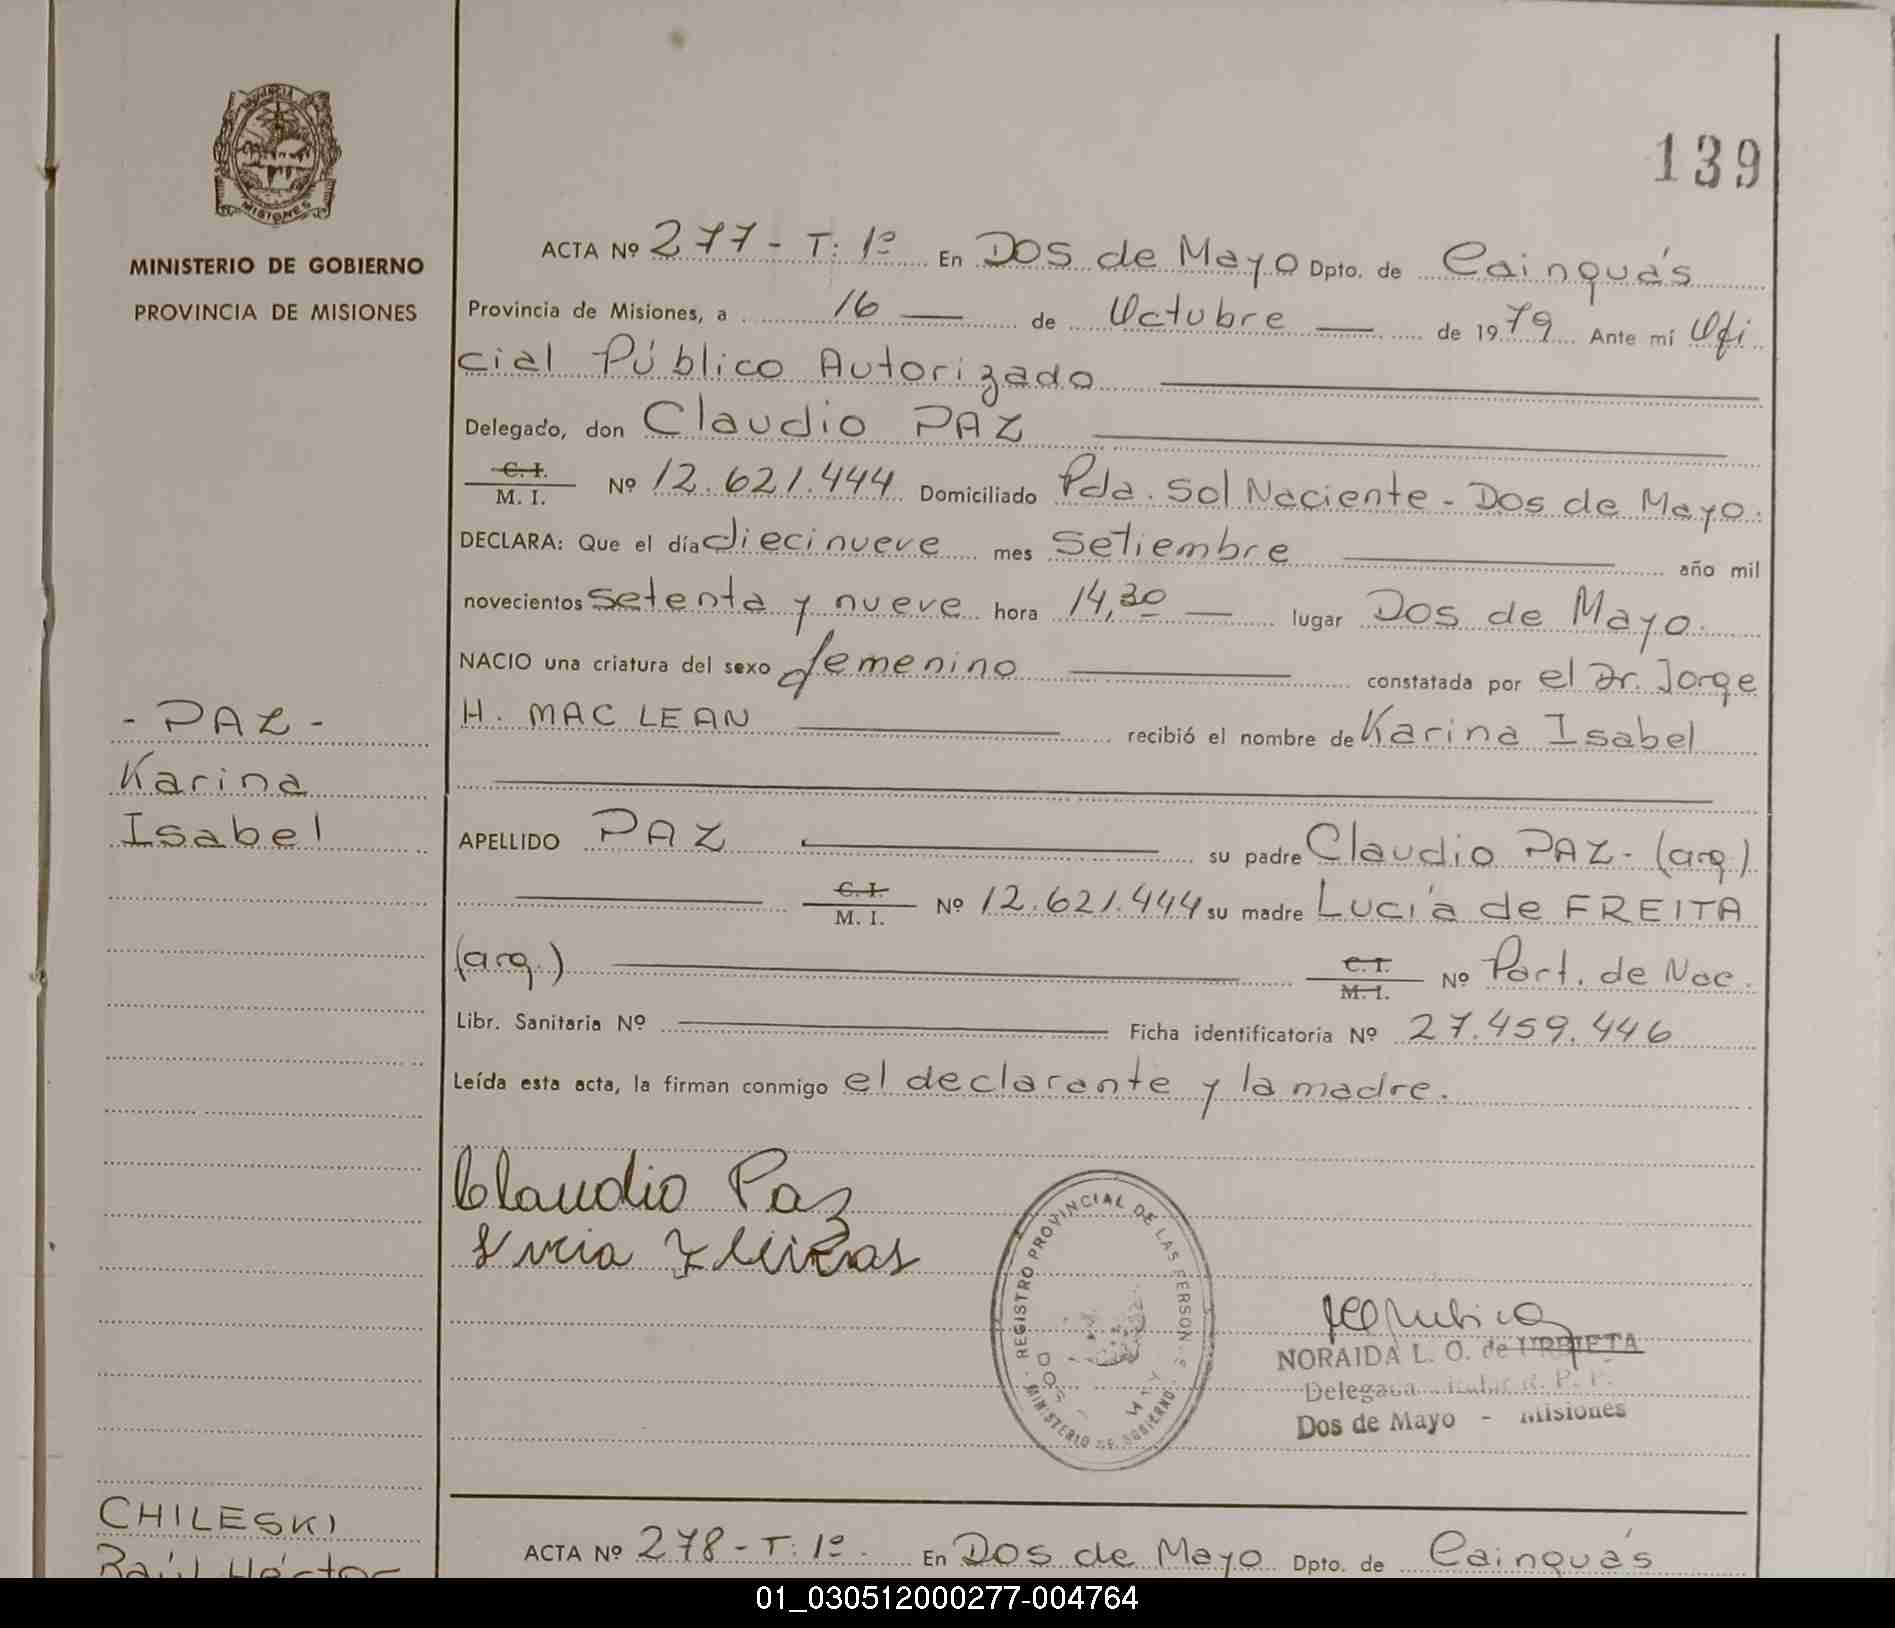 PROVINCIA
MISIONES
MINISTERIO DE GOBIERNO
PROVINCIA DE MISIONES
139
ACTA Nº 277 - T: 1º En Dos de Mayo Dpto. de Cainguás
Provincia de Misiones, a 16 de Octubre de 1979 Ante mí Ofi
cial Público Autorizado
Delegado, don Claudio PAZ
C. I.
M. I. Nº 12.621.444 Domiciliado Pda. Sol Naciente - Dos de Mayo.
DECLARA: Que el día diecinueve mes Setiembre año mil
novecientos setenta y nueve hora 14,30 lugar Dos de Mayo.
NACIO una criatura del sexo femenino constatada por el Dr. Jorge
H. MAC LEAN recibió el nombre de Karina Isabel
- PAZ -
Karina
Isabel
APELLIDO PAZ su padre Claudio PAZ - (arg.)
C. I.
M. I. Nº 12.621.444 su madre Lucía de FREITA
(arg.) C. I.
M. I. Nº Part. de Nac.
Libr. Sanitaria Nº Ficha identificatoria Nº 27.459.446
Leída esta acta, la firman conmigo el declarante y la madre.
Claudio Paz
Lucia
REGISTRO PROVINCIAL DE LAS PERSON.
DOS
MINISTERIO DE GOBIERNO
NORAIDA L. O. de URRIETA
Dos de Mayo - Misiones
CHILESKI
Raúl Héctor
ACTA Nº 278 - T: 1º. En Dos de Mayo Dpto. de Cainguás
01_030512000277-004764